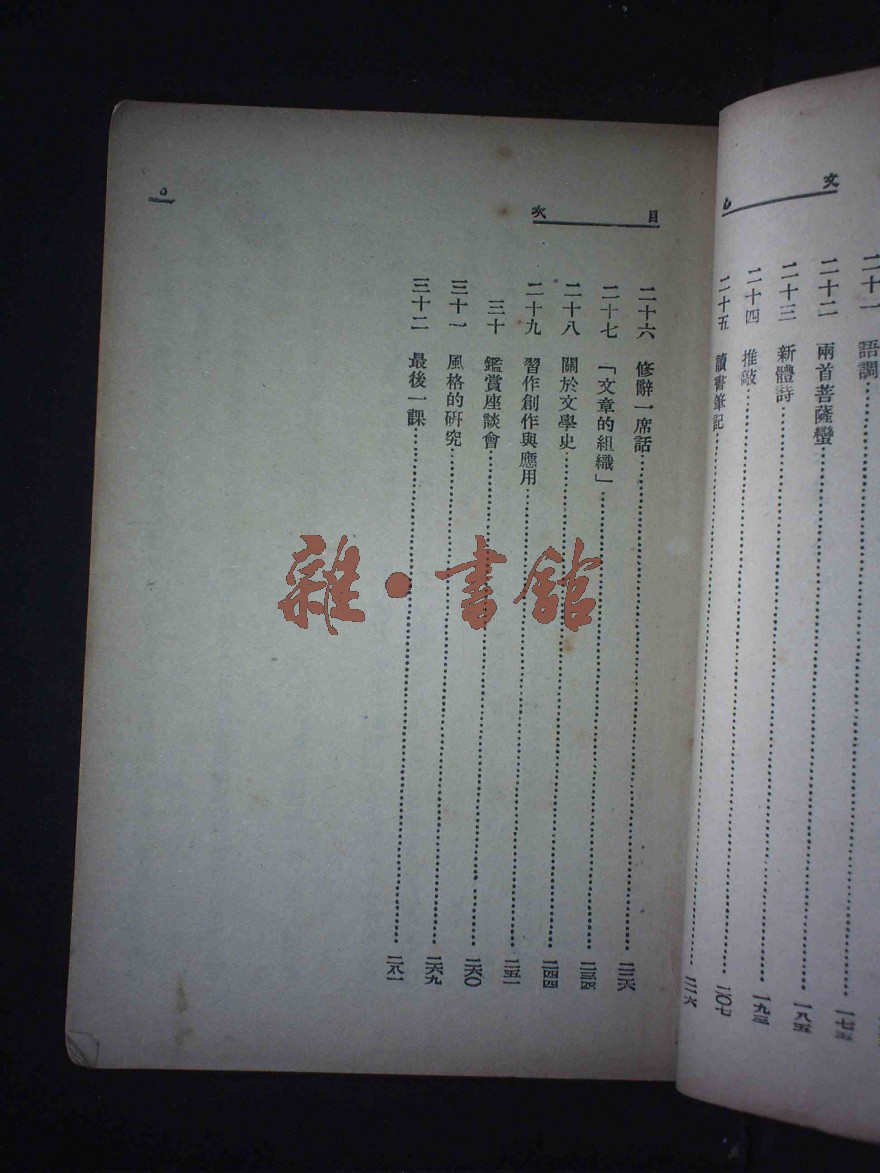 文心
二十一 語調⋯⋯一七五
二十二 兩首菩薩蠻⋯⋯一八五
二十三 新體詩⋯⋯一九三
二十四 推敲⋯⋯二〇七
二十五 讀書筆記⋯⋯二一六
目次
二十六 修辭一席話⋯⋯二二六
二十七 「文章的組織」⋯⋯二三四
二十八 關於文學史⋯⋯二四四
二十九 習作創作與應用⋯⋯二五一
三十 鑑賞座談會⋯⋯二六〇
三十一 風格的研究⋯⋯二六九
三十二 最後一課⋯⋯二八一
3
雜·書館